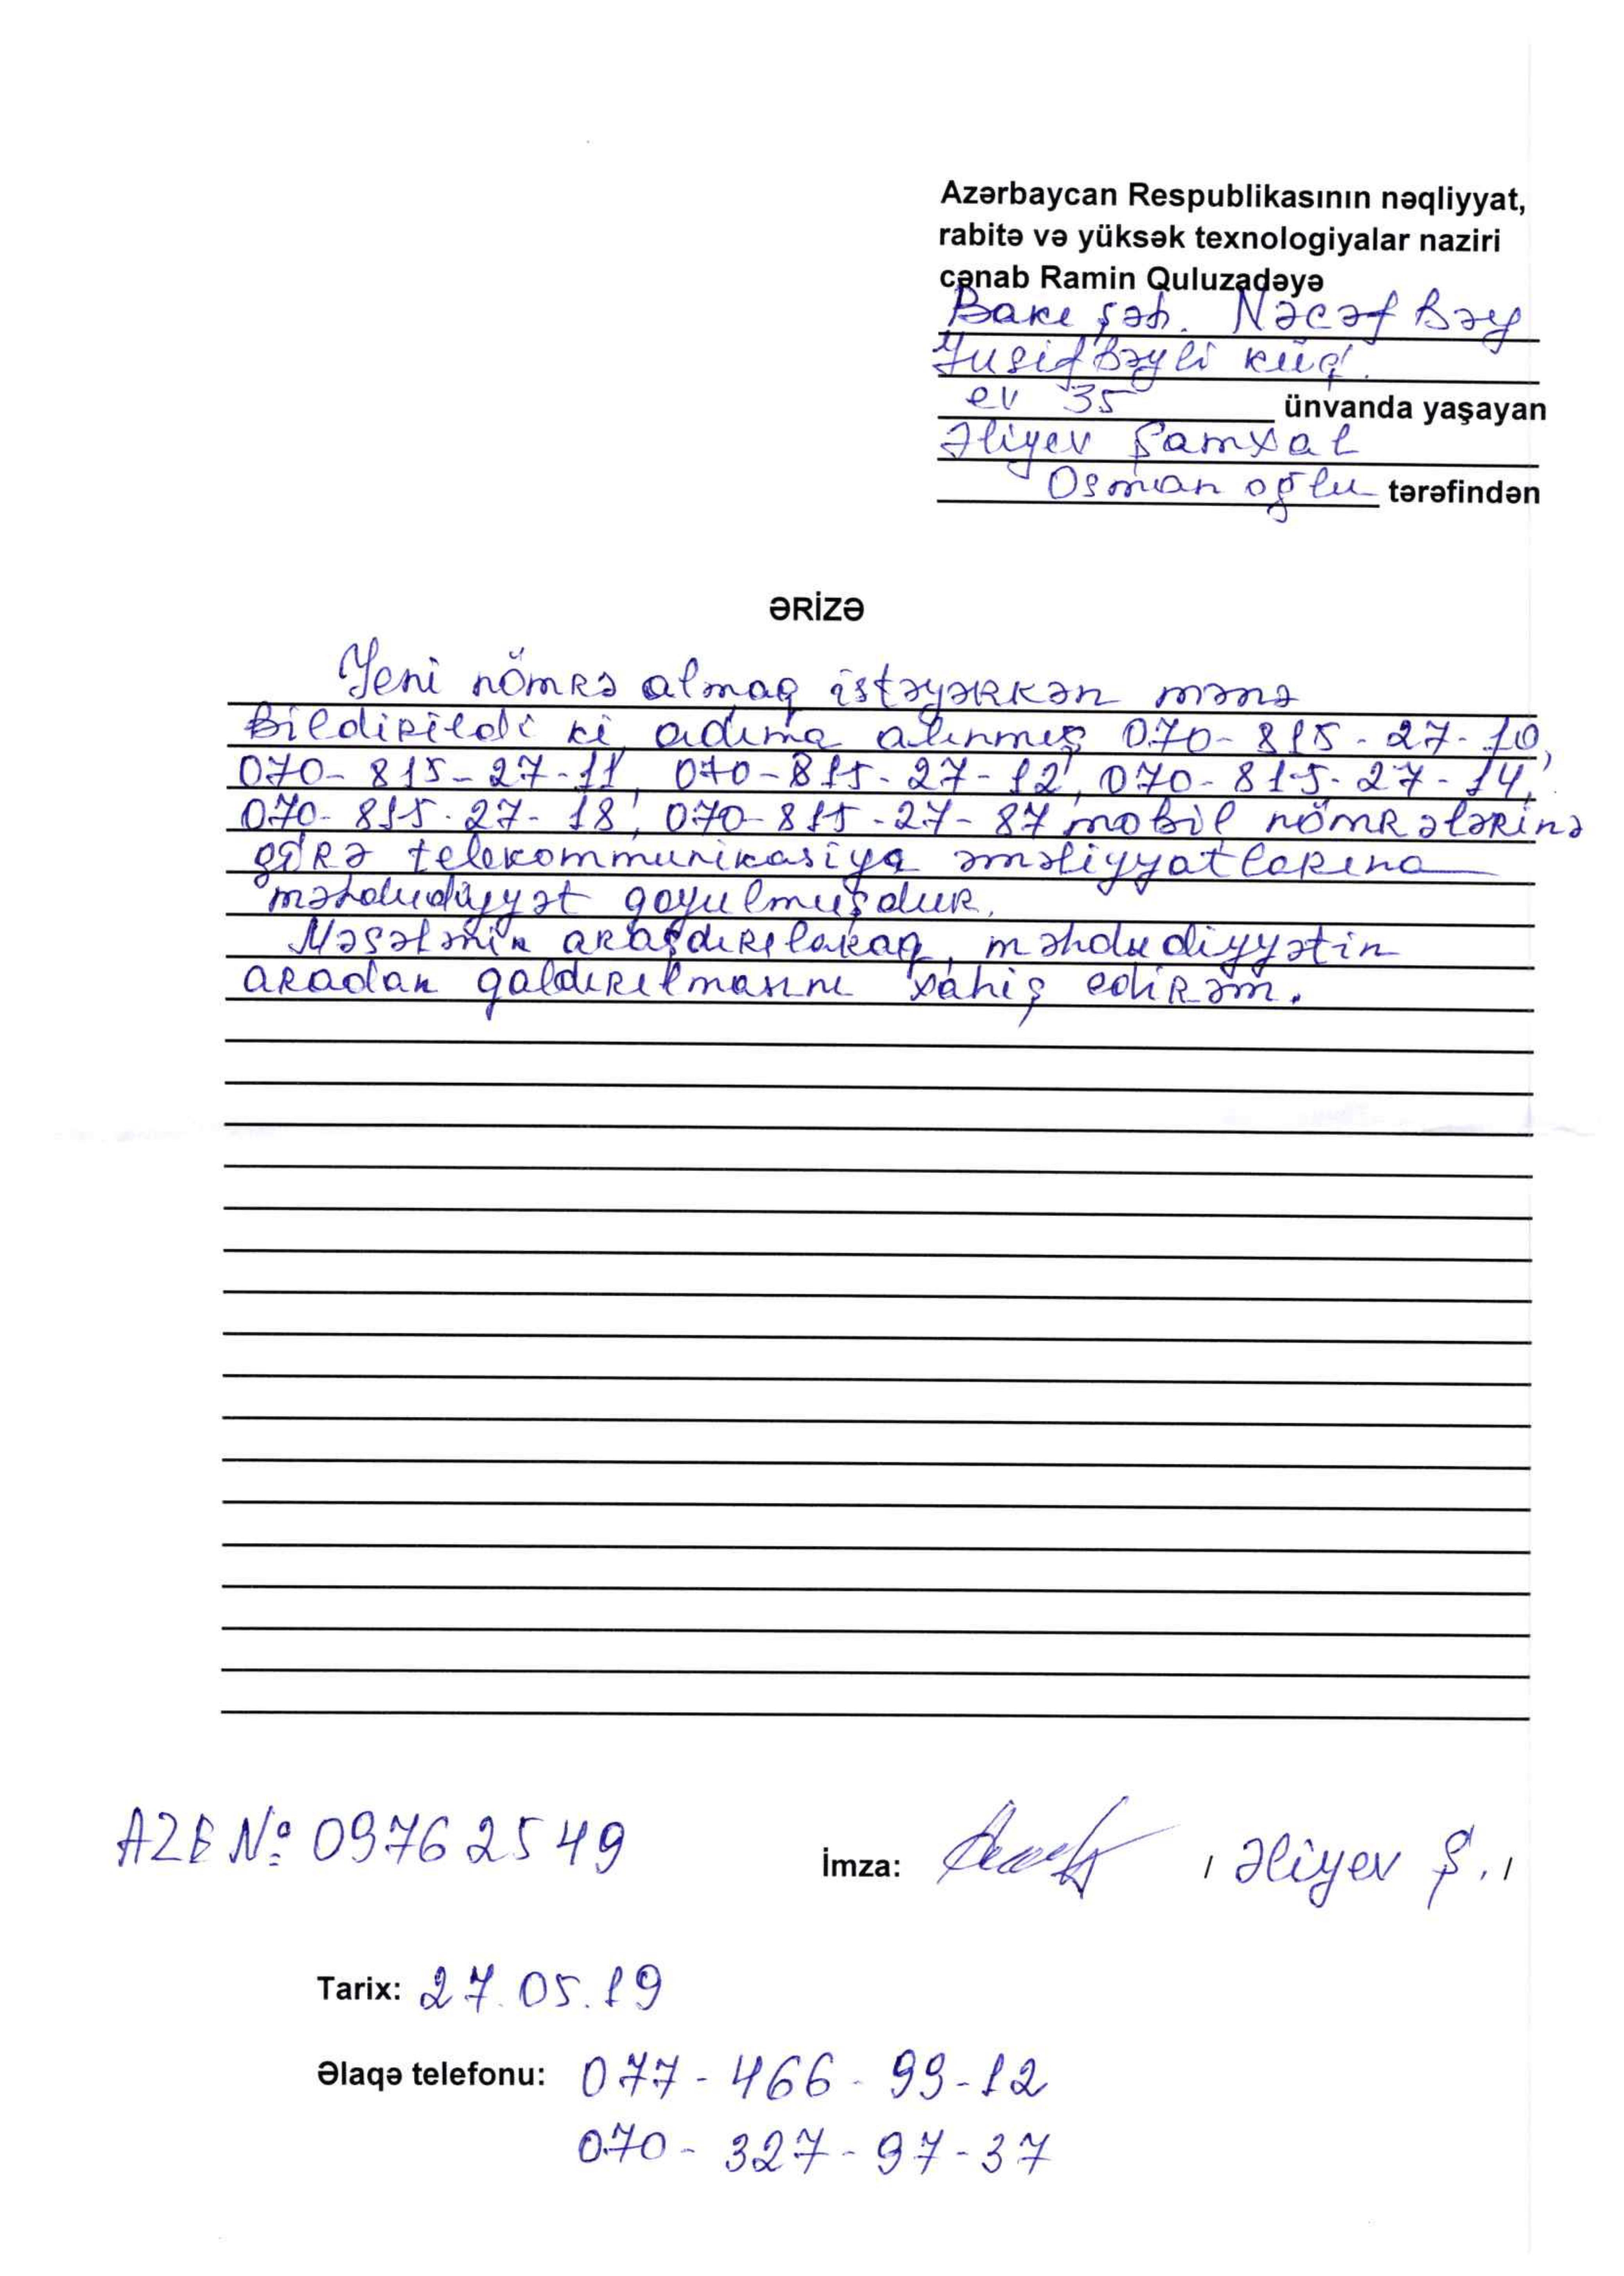 Azərbaycan Respublikasının nəqliyyat,
rabitə və yüksək texnologiyalar naziri
cənab Ramin Quluzadəyə
Bakı şəh. Nəcəf Bəy
Yusifbəyli küç.
ev 35 ünvanda yaşayan
Əliyev Şamxal
Osman oğlu tərəfindən
ƏRİZƏ
Yeni nömrə almaq istəyərkən mənə
Bildirildi ki, adıma alınmış 070-815-27-10,
070-815-27-11, 070-815-27-12, 070-815-27-14,
070-815-27-18, 070-815-27-87 mobil nömrələrinə
görə telekommunikasiya əməliyyatlarına
məhdudiyyət qoyulmuşdur.
Məsələnin araşdırılaraq, məhdudiyyətin
aradan qaldırılmasını xahiş edirəm.
AZE № 09762549
İmza: / Əliyev Ş. /
Tarix: 27.05.19
Əlaqə telefonu: 077-466-99-12
070-327-97-37